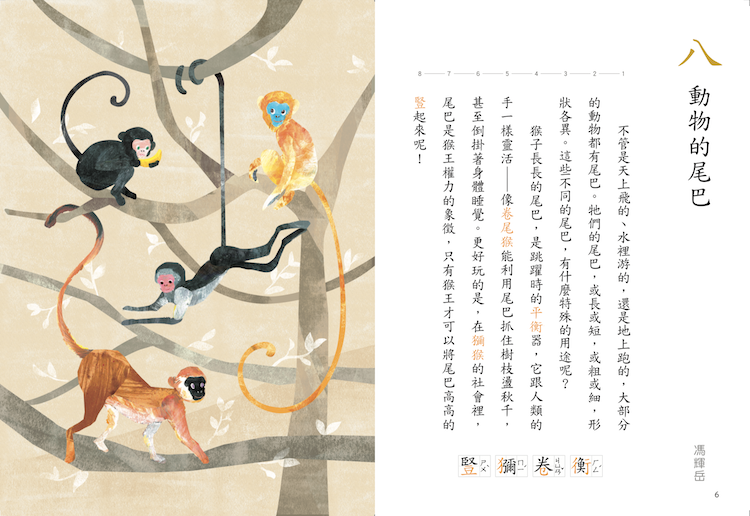 八
動物的尾巴
馮輝岳
1
2
3
4
5
6
7
8
不管是天上飛的、水裡游的，還是地上跑的，大部分
的動物都有尾巴。牠們的尾巴，或長或短，或粗或細，形
狀各異。這些不同的尾巴，有什麼特殊的用途呢？
猴子長長的尾巴，是跳躍時的平衡器，它跟人類的
手一樣靈活——像卷尾猴能利用尾巴抓住樹枝盪秋千，
甚至倒掛著身體睡覺。更好玩的是，在獼猴的社會裡，
尾巴是猴王權力的象徵，只有猴王才可以將尾巴高高的
豎起來呢！
衡
卷
獼
豎
6